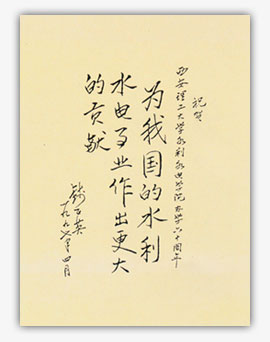 祝贺
西安理工大学水利水电学院办学六十周年
为我国的水利
水电事业作出更大
的贡献
钱正英
一九九七年四月